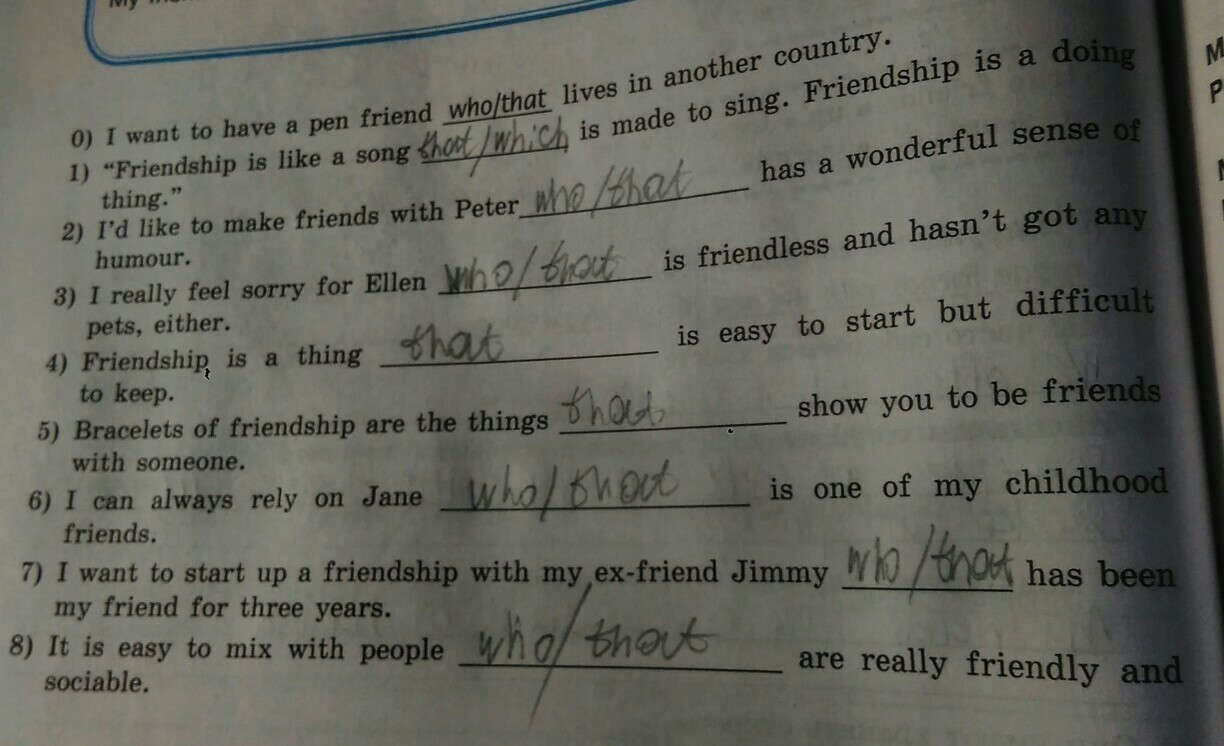 0) I want to have a pen friend who/that lives in another country.
1) “Friendship is like a song that/which is made to sing. Friendship is a doing
thing.”
2) I’d like to make friends with Peter who/that has a wonderful sense of
humour.
3) I really feel sorry for Ellen who/that is friendless and hasn’t got any
pets, either.
4) Friendship is a thing that is easy to start but difficult
to keep.
5) Bracelets of friendship are the things that show you to be friends
with someone.
6) I can always rely on Jane who/that is one of my childhood
friends.
7) I want to start up a friendship with my ex-friend Jimmy who/that has been
my friend for three years.
8) It is easy to mix with people who/that are really friendly and
sociable.